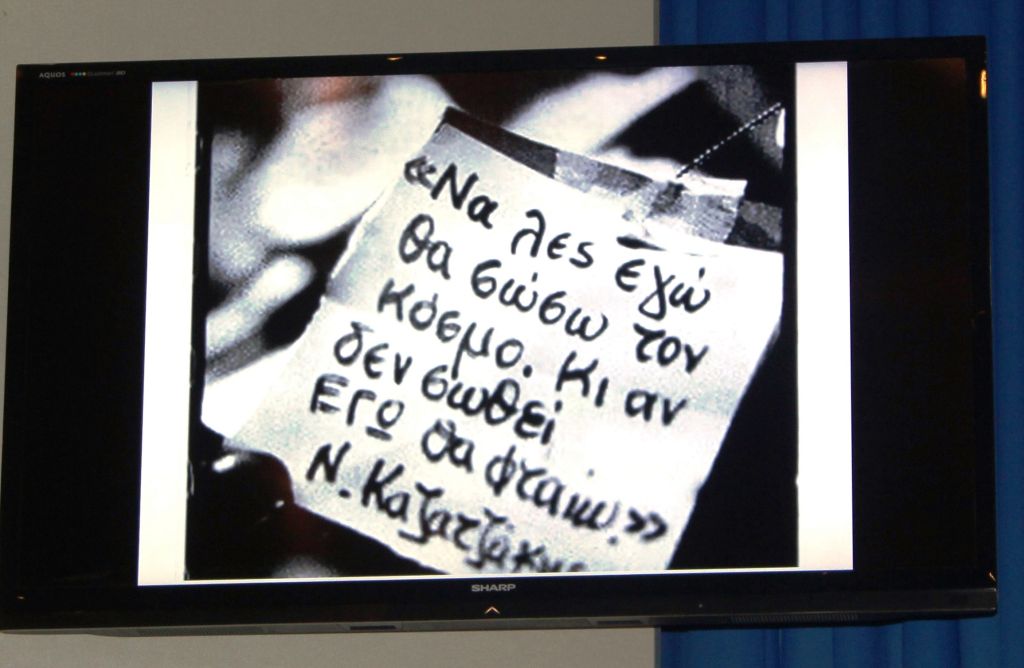 AQUOS
«Να λες εγώ
θα σώσω τον
κόσμο. Κι αν
δεν σωθεί
ΕΓΩ θα φταίω!»
Ν. Καζατζάκης
SHARP